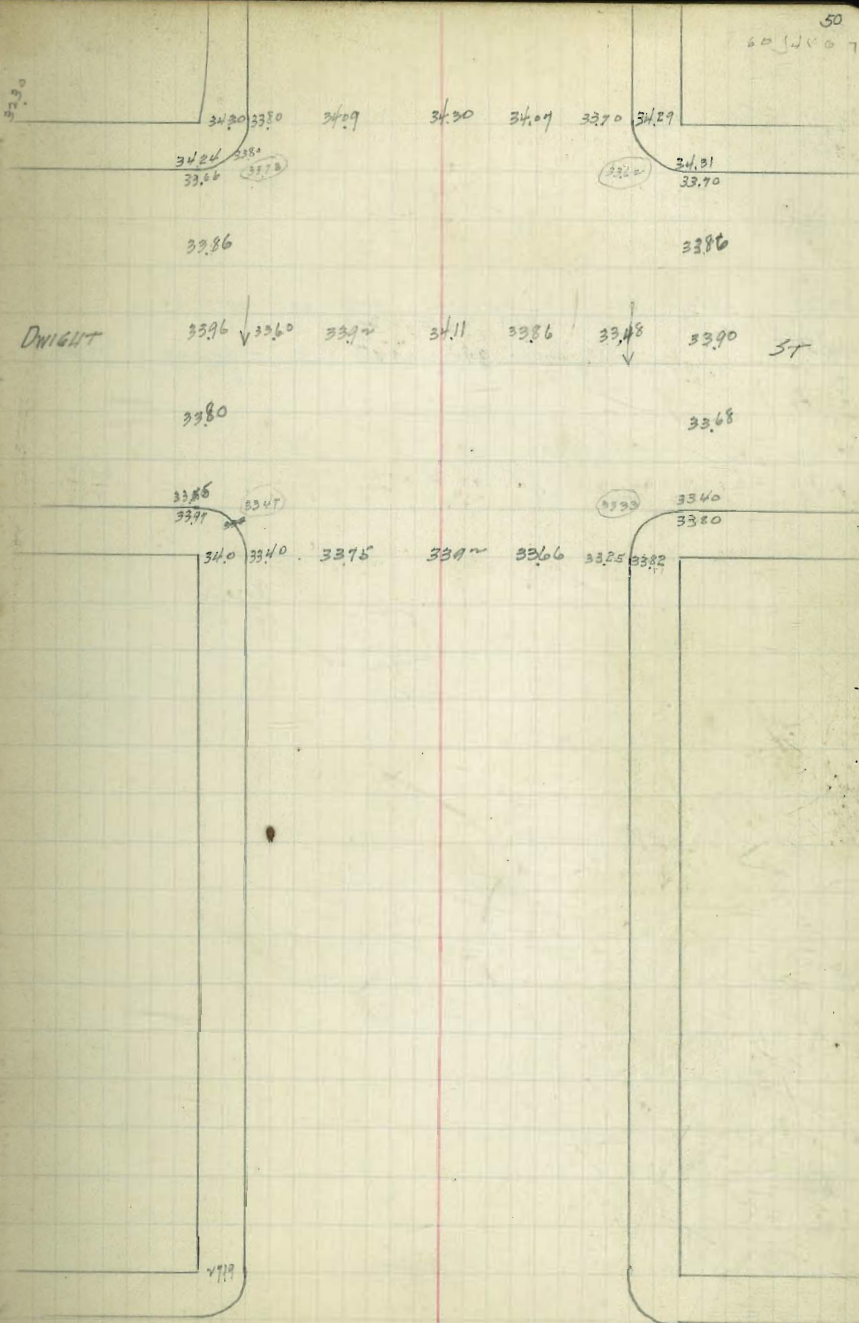 50
34.30 33.80 34.09 34.30 34.07 33.70 34.29
34.24 33.80 34.31
33.66 33.73 33.62 33.70
33.86 33.86
DWIGHT 33.96 33.60 33.92 34.11 33.86 33.48 33.90 ST
33.80 33.68
33.47 33.33 33.40
33.97 33.80
34.0 33.40 33.75 33.92 33.66 33.25 33.82
27.19